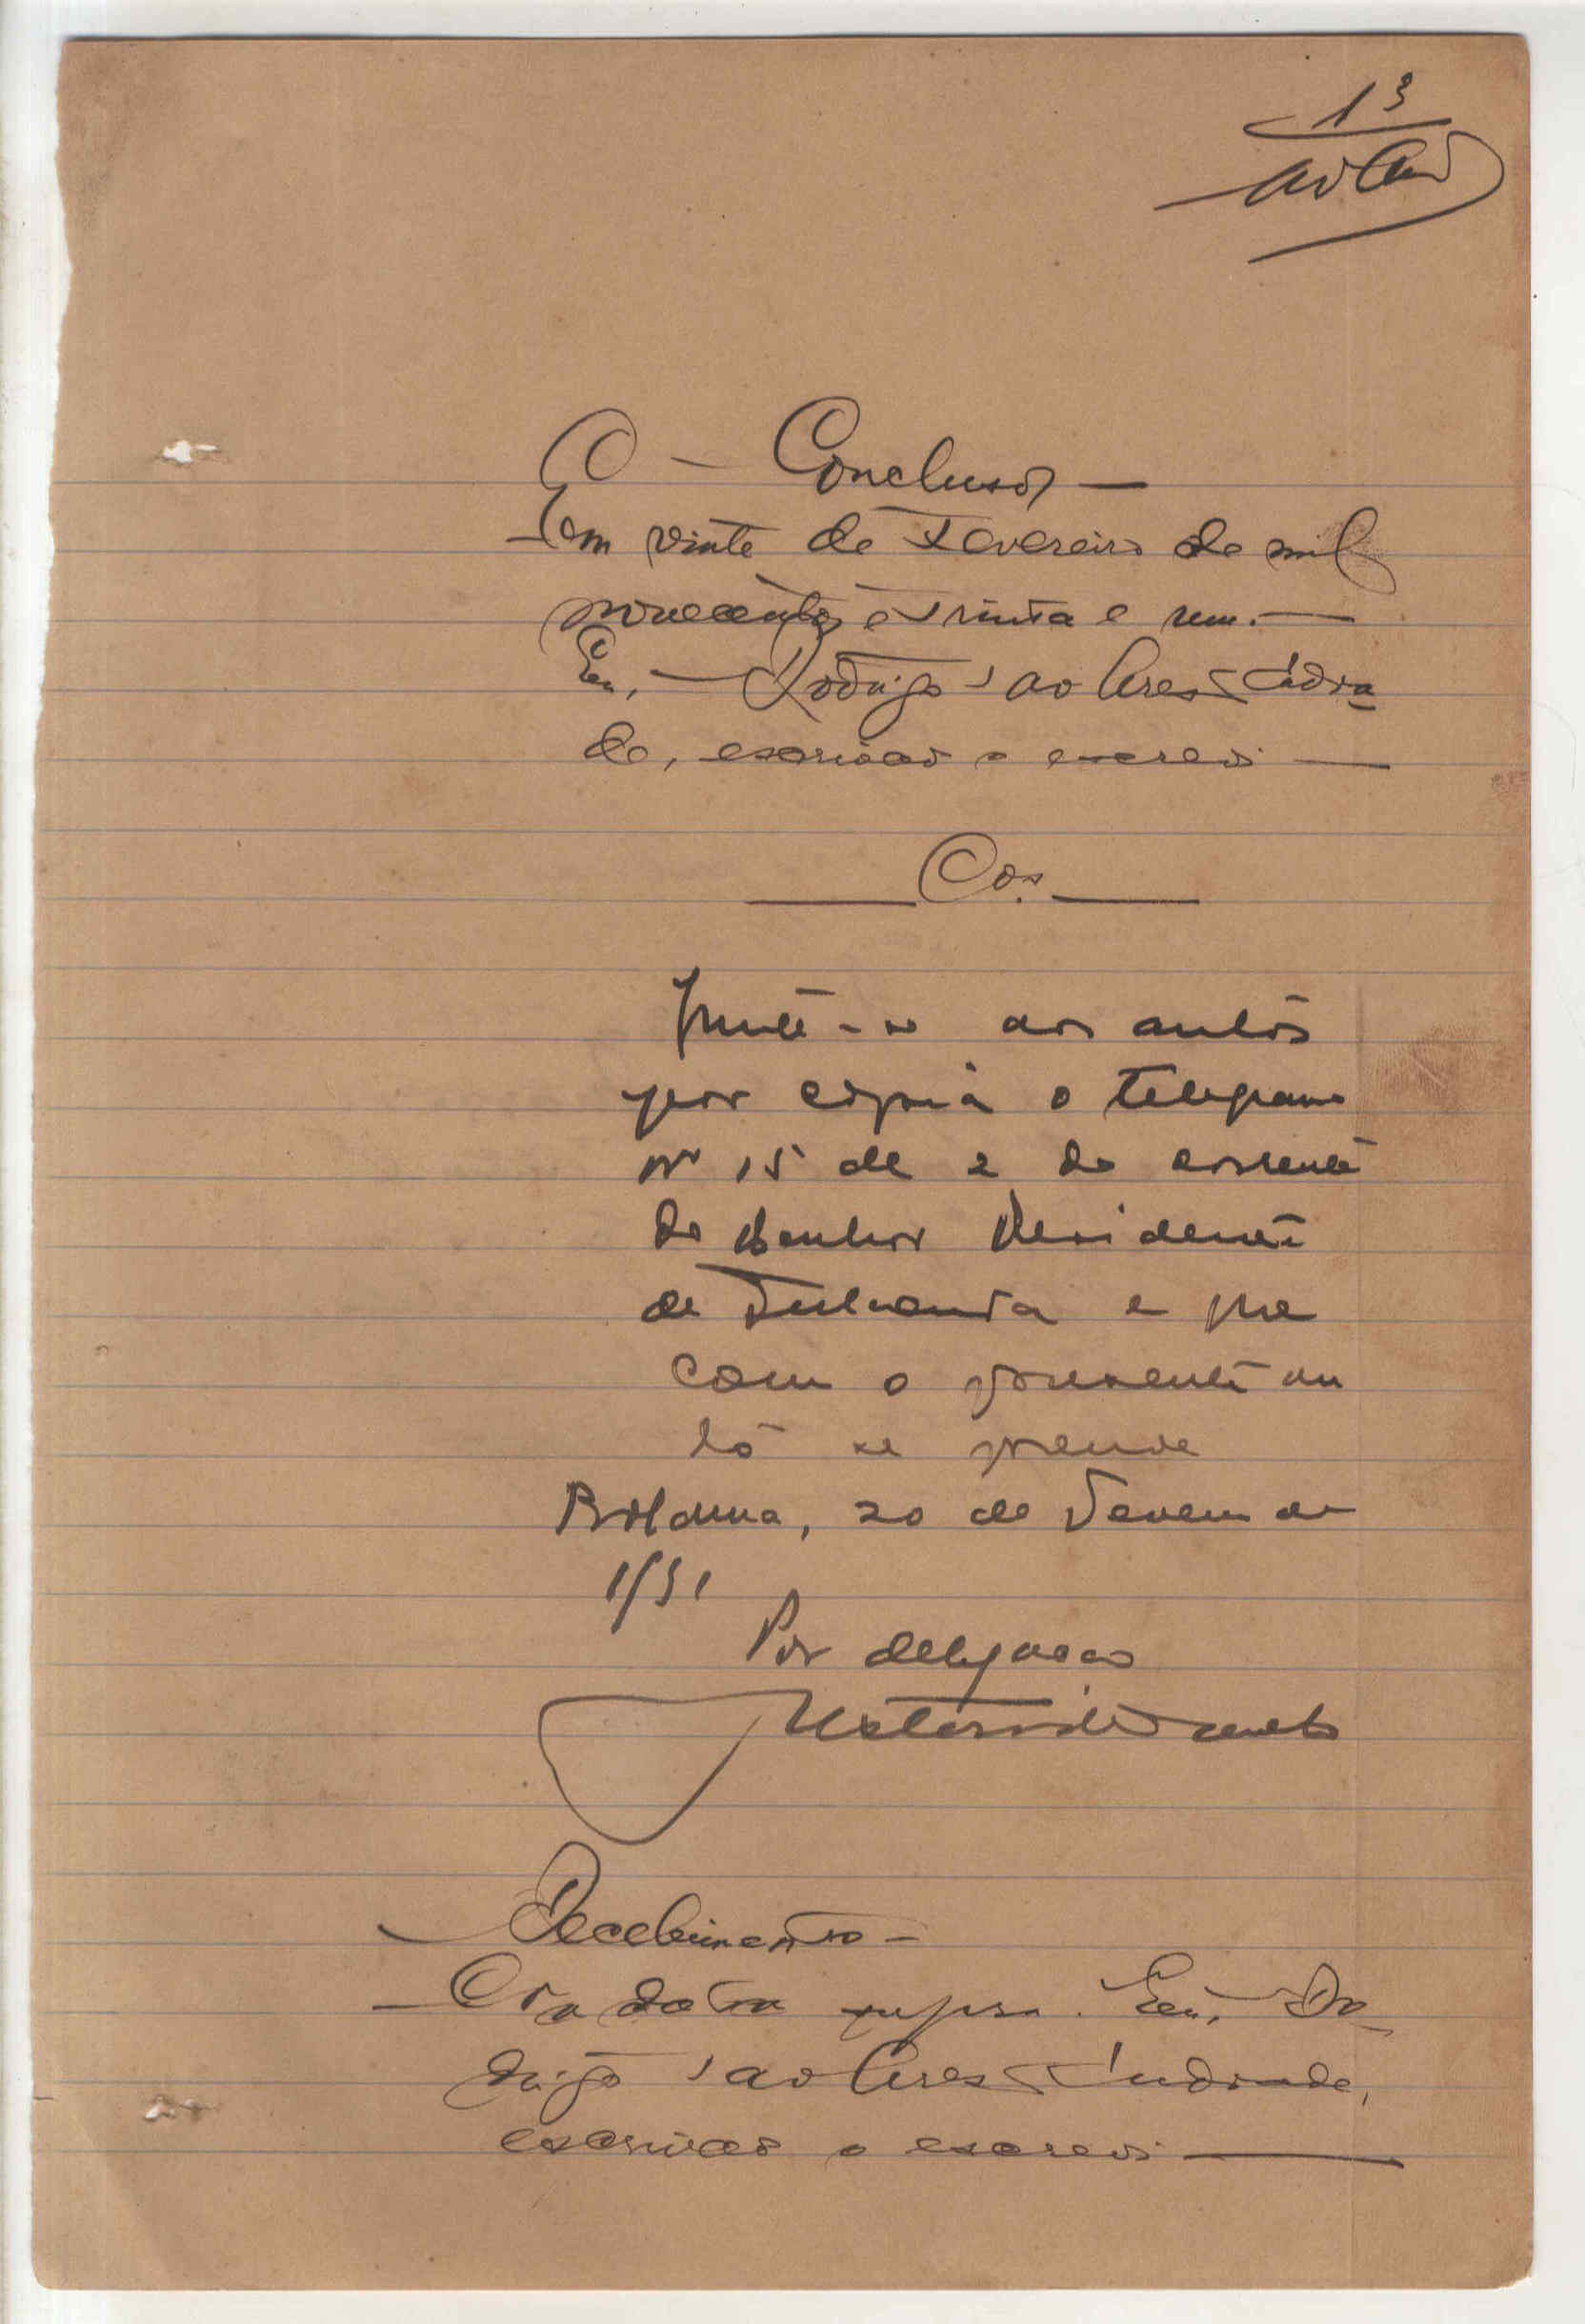 13
C - Conclusos -
Em vinte de Fevereiro de mil
novecentos e trinta e um. -
Eu, - Rodrigo Tavares Andra
de, escrivão o escrevi -
Cos.
Junte-se aos autos
por copia o telegrama
nº 15 de 2 do corrente
do Senhor Presidente
de e que
com o presente au
to se prende
20 de Fever de
1931
Por delegacao
- Recebimento -
- Era data supra. Eu, Ro-
drigo Tavares Andrade,
escrivão o escrevi -